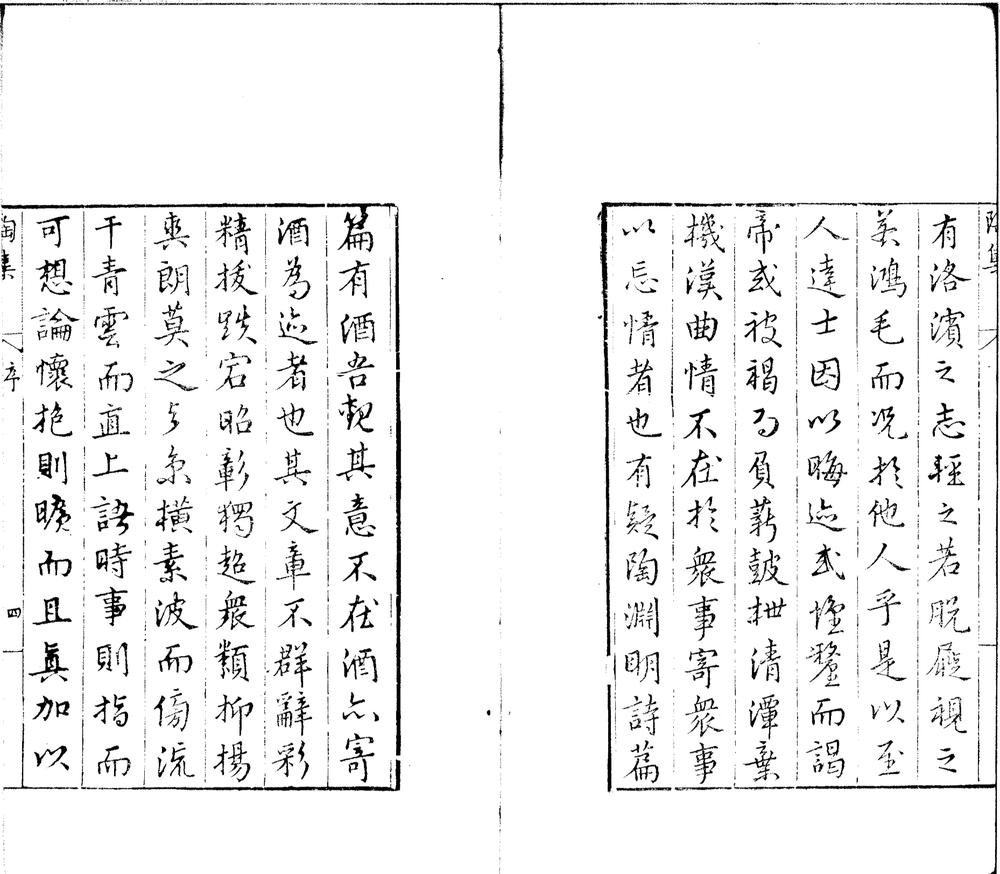 陶集
有洛濱之志輕之若脫屣視之
若鴻毛而况於他人乎是以至
人達士因以晦迹或懷釐而謁
帝或被褐而負薪鼓枻清潭棄
機漢曲情不在於衆事寄衆事
以忘情者也有疑陶淵明詩篇
篇有酒吾觀其意不在酒亦寄
酒為迹者也其文章不群辭彩
精拔跌宕昭彰獨超衆類抑揚
爽朗莫之与京横素波而傍流
干青雲而直上語時事則指而
可想論懷抱則曠而且真加以
陶集
序
四